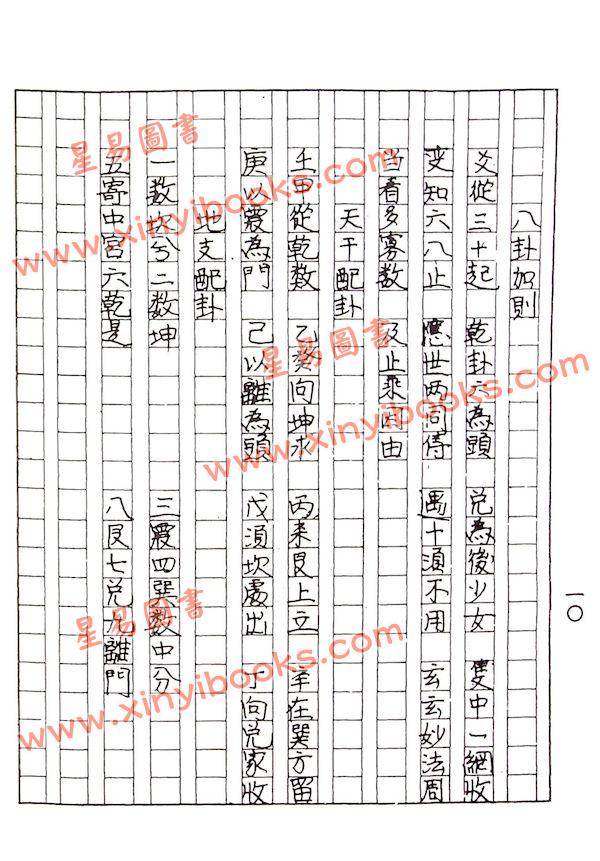 八卦加則
爻從三十起 乾卦六為頭 兌為後少女 隻中一網收
变知六八止 應世两同停 遇十須不用 玄玄妙法周
当看多寡数 及止乘因由
天干配卦
壬甲從乾数 乙癸向坤求 丙来艮上立 辛在巽方留
庚以震為門 己以離為頭 戊須坎處出 丁向兌家收
地支配卦
一数坎兮二数坤 三震四巽数中分
五寄中宮六乾是 八艮七兌九離門
一〇
星易圖書
www.xinyibooks.com
星易圖書
www.xinyibooks.com
星易圖書
www.xinyibooks.com